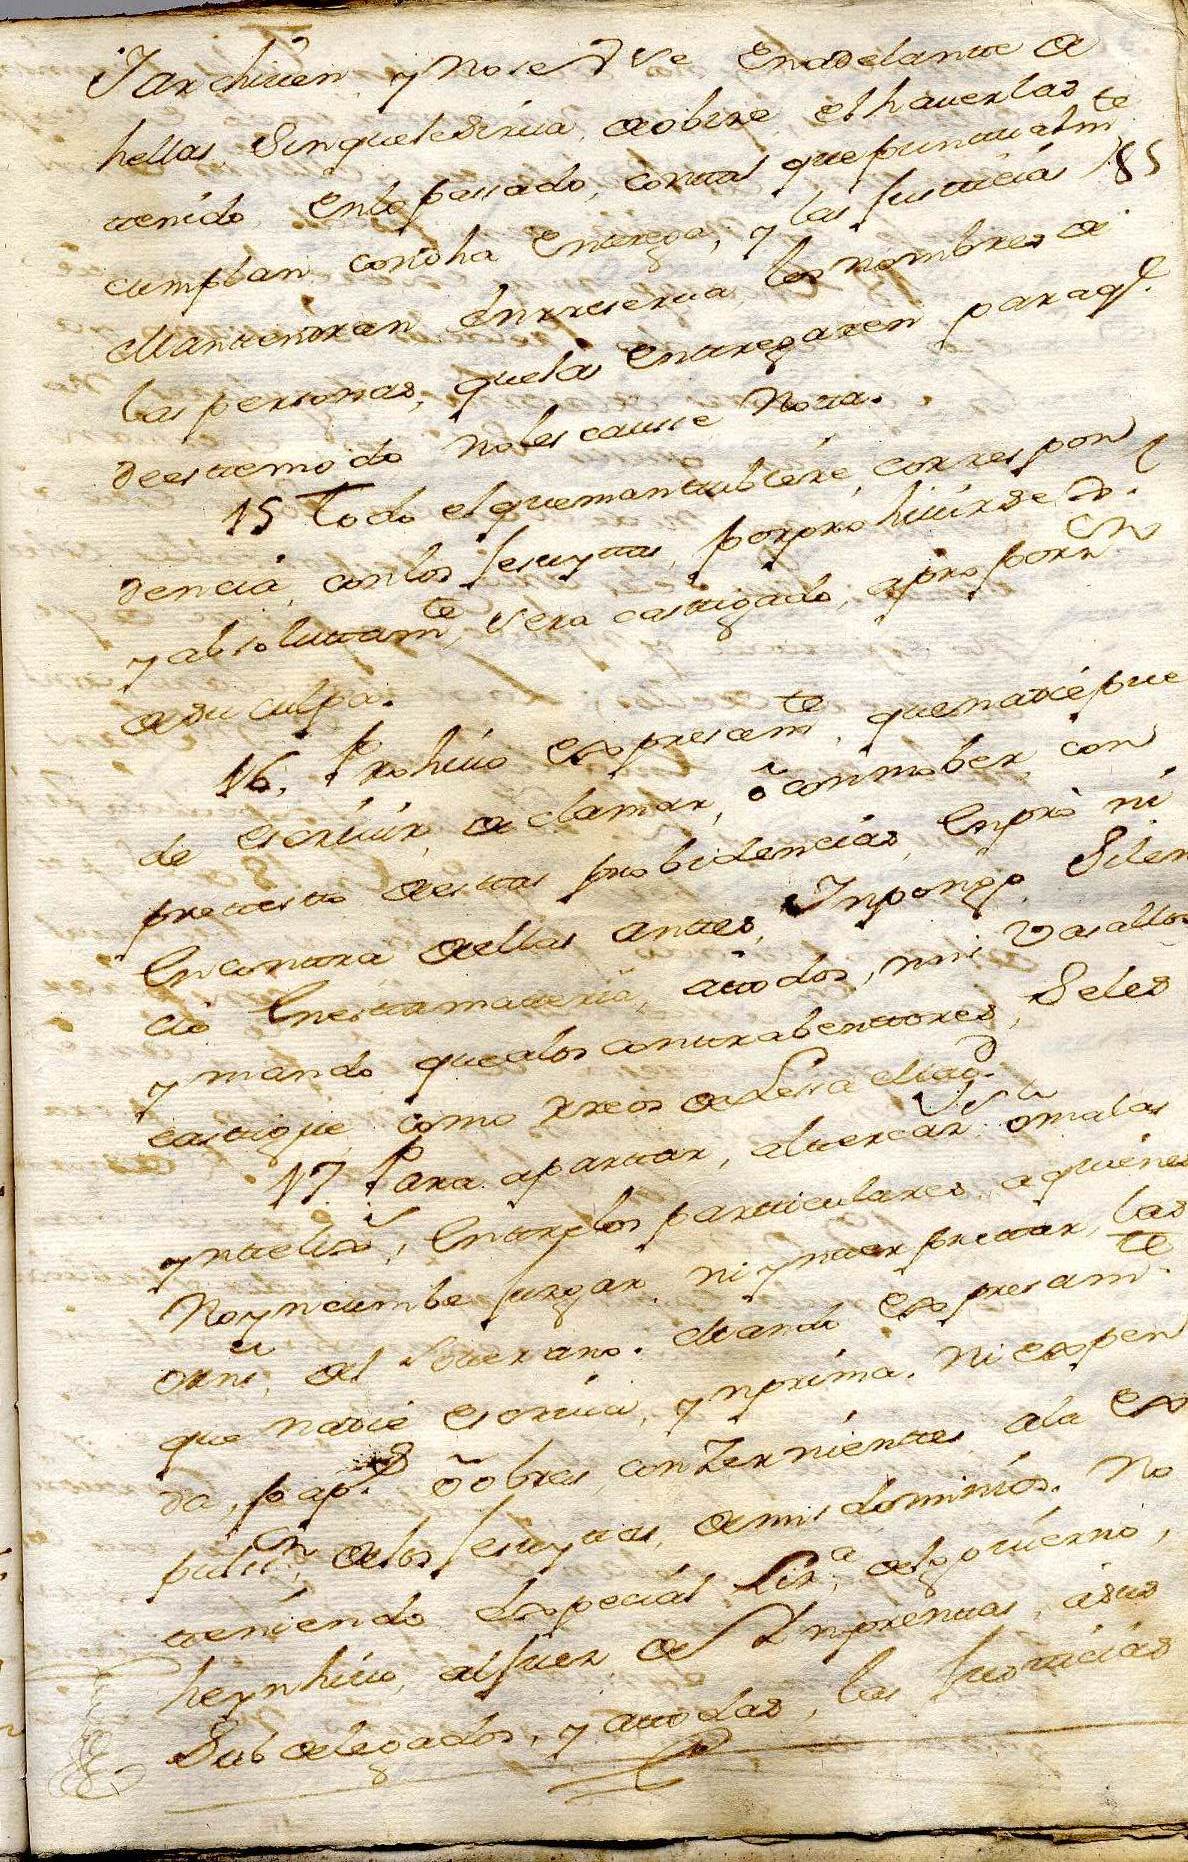 Y archiven y no se use en adelante de
hellas, sin que le sirva, de obize el haverlas
tenido, en lo passado, con tal que puntualmte
cumplan con dha entrega, y las Justicias 185
Mantentran en rreserva los nombres de
las personas, que las entregaren para qe.
de este modo no les causse nota.
15 Todo el que mantubiere, correspon
dencia, con los Jesuytas, por prohivirse
y absoluttamte, sera castigado, a proporzn
de su culpa.
16. Prohivo expresamte, que nadie pue
de escrivir, declamar, ô conmober, con
pretesto de estas probidencias, en pro ni
en contra de ellas antes, Ynpongo Silen
cio en esta materia, a ttodos, mis Vasallos
y mando que a los contrabenttores, Seles
castigue como rreos de Lesa Magd.
17 Para apartar, altercazs. o malas
yntelixas, entre los particulares a quienes
No yncumbe juzgar, ni ynterpretar, las
ordns. del soverano. Mando expresamte.
que nadie escriva, ynprima, ni expen
da, papls. ô obras, conzernientes a la ex
pulsn. de los Jesuytas, de mis dominios. No
teniendo especial Liza. del govierno,
he ynhivo, al Juez de Ynprentas, a sus
Subdelegados, y a ttodas, las Justicias